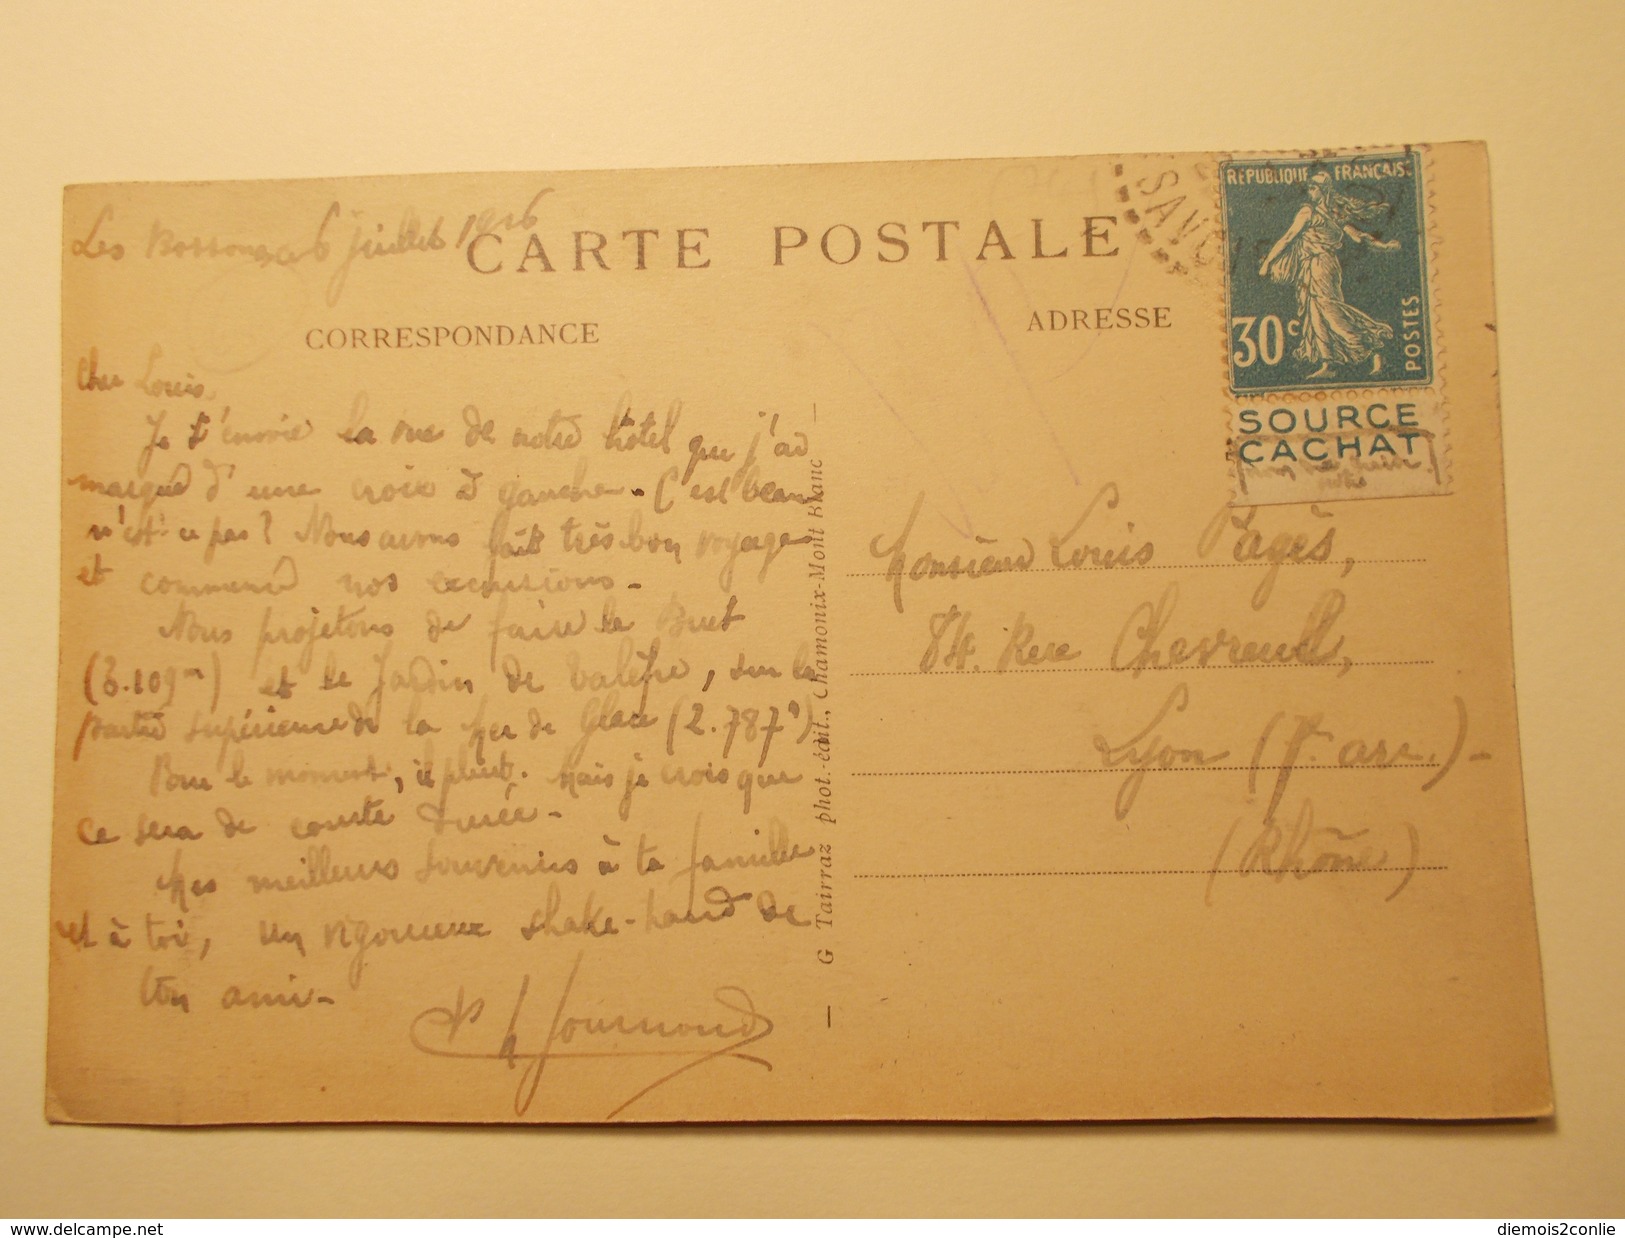 Les Bossons, ce 6 juillet 1926
CARTE POSTALE
CORRESPONDANCE
ADRESSE
SAVOIE
REPUBLIQUE FRANÇAISE
30c
POSTES
SOURCE
CACHAT
Cher Louis,
Je t'envoie la vue de notre hôtel que j'ai
marqué d'une croix à gauche. C'est beau
n'est-ce pas? Nous avons fait très bon voyage
et commencé nos excursions.
Nous projetons de faire le Buet
(3.109m) et le Jardin de Talèfre, sur la
partie supérieure de la Mer de Glace (2.787m)
Pour le moment, il pleut. Mais je crois que
ce sera de courte durée.
Mes meilleurs souvenirs à ta famille
et à toi, un vigoureux shake-hand de
ton ami.
G Tairraz phot.-édit., Chamonix-Mont Blanc
Monsieur Louis Pagès,
84. Rue Chevreul,
Lyon (7e arr.)-
(Rhône)
diemois2conlie